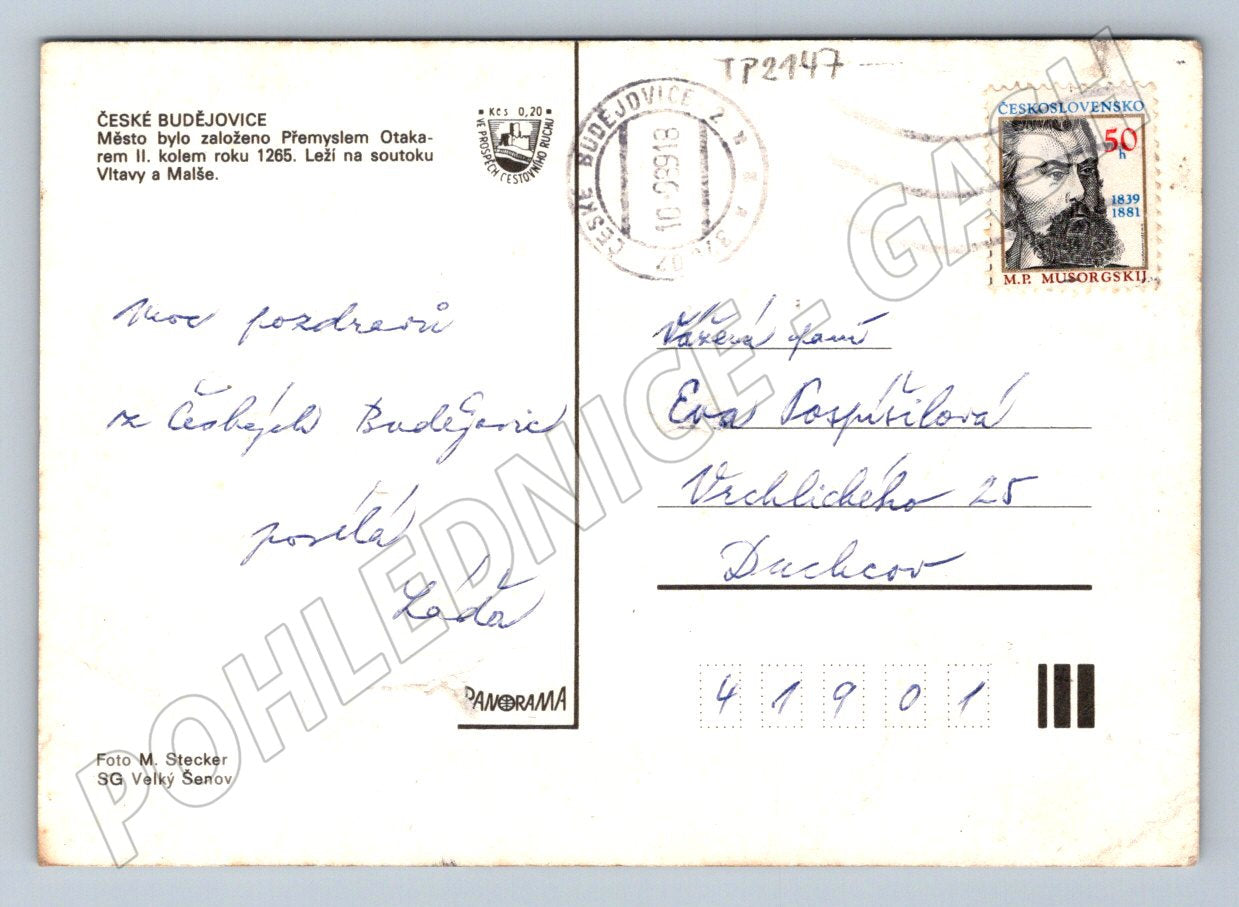 ČESKÉ BUDĚJOVICE
Město bylo založeno Přemyslem Otaka-
rem II. kolem roku 1265. Leží na soutoku
Vltavy a Malše.
Kčs 0,20
VE PROSPĚCH CESTOVNÍHO RUCHU
Moc pozdravů
z Českých Budějovic
posílá
Láďa
PANORAMA
Foto M. Stecker
SG Velký Šenov
TP2147
ČESKÉ BUDĚJOVICE 2
ČESKOSLOVENSKO
50
h
1839
1881
M.P. MUSORGSKIJ
Vážená paní
Eva Pospíšilová
Vrchlického 25
Duchcov
41901
POHLEDNICE - GASH